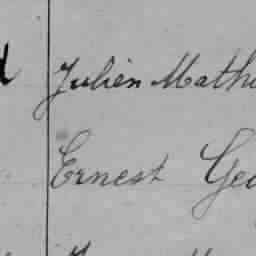 Julien Math
Ernest Geo